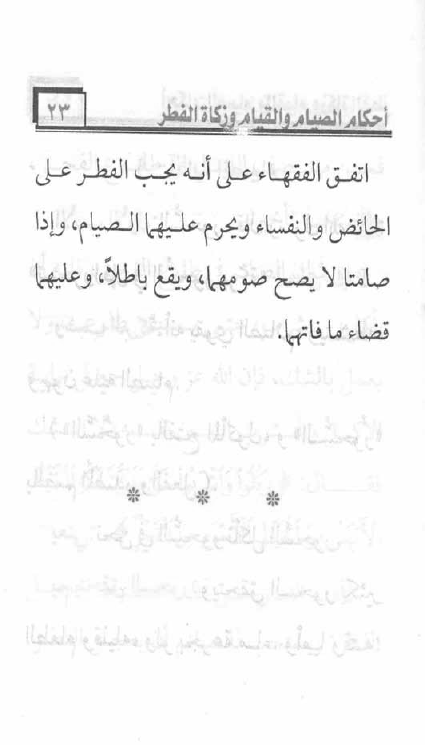 أحكام الصيام والقيام وزكاة الفطر
٢٣
اتفق الفقهاء على أنه يجب الفطر على
الحائض والنفساء ويحرم عليهما الصيام، وإذا
صامتا لا يصح صومهما، ويقع باطلاً، وعليهما
قضاء ما فاتهما.